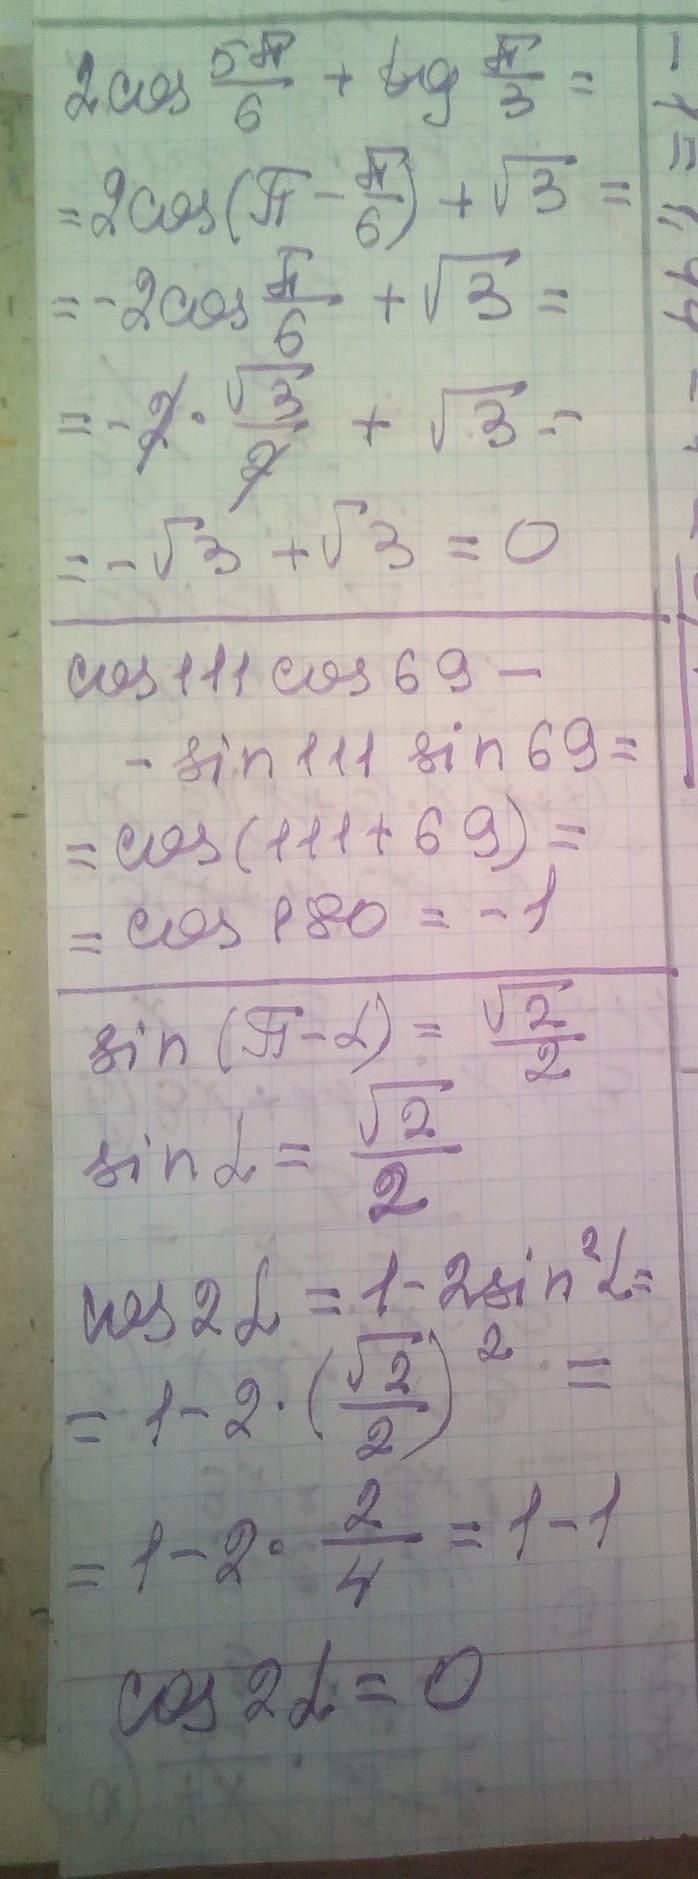 2cos 5π/6 + tg π/3 =
= 2cos(π - π/6) + √3 =
= -2cos π/6 + √3 =
= -2 · √3/2 + √3 =
= -√3 + √3 = 0
cos 111 cos 69 -
- sin 111 sin 69 =
= cos(111 + 69) =
= cos 180 = -1
sin(π - α) = √2/2
sin α = √2/2
cos 2α = 1 - 2sin²α =
= 1 - 2 · (√2/2)² =
= 1 - 2 · 2/4 = 1 - 1
cos 2α = 0